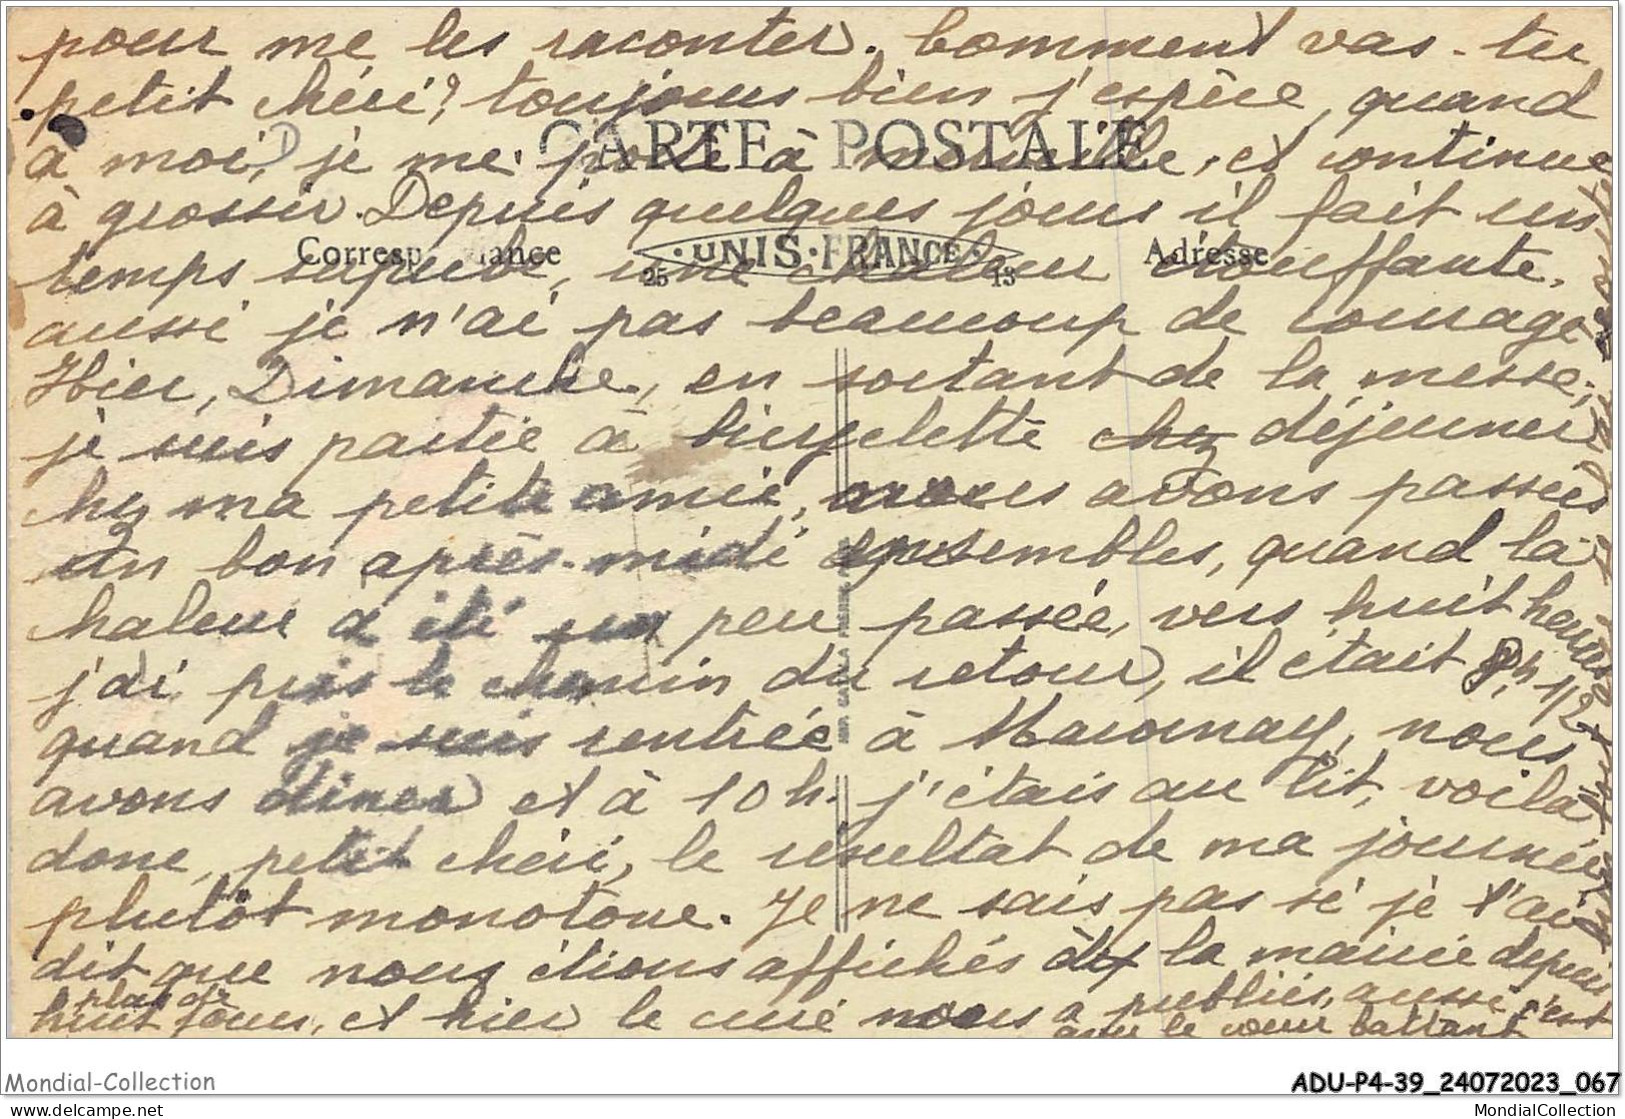 pour me les raconter. Comment vas-tu
petit chéri? toujours bien j'espère, quand
CARTE POSTALE
à moi, je me porte à merveille, et continue
à grossir. Depuis quelques jours il fait un
Correspondance UNIS-FRANCE Adresse
temps superbe, une chaleur étouffante,
25 13
aussi je n'ai pas beaucoup de courage
Hier, Dimanche, en sortant de la messe,
je suis partie à bicyclette chez déjeuner
chez ma petite amie, nous avons passées
un bon après-midi ensembles, quand la
chaleur à été un peu passée, vers huit heures
j'ai pris le chemin du retour, il était 8h 1/2
quand je suis rentrée à Marcenay, nous
avons diner et à 10h. j'étais au lit, voilà
donc, petit chéri, le résultat de ma journée
plutôt monotone. Je ne sais pas si je t'ai
dit que nous étions affichés à la mairie depuis
plus de
huit jours, et hier le curé nous a publiés, aussi c'est
avec le cœur battant
Mondial-Collection
ADU-P4-39_24072023_067
www.delcampe.net
MondialCollection